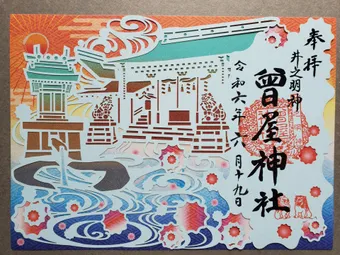 奉拝
井之明神
曽屋神社
令和六年六月十九日